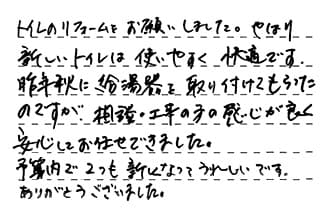 トイレのリフォームをお願いしました。やはり
新しいトイレは使いやすく快適です。
昨年秋に給湯器を取り付けてもらった
のですが、相談・工事の方の感じが良く
安心してお任せできました。
予算内で2つも新しくなってうれしいです。
ありがとうございました。